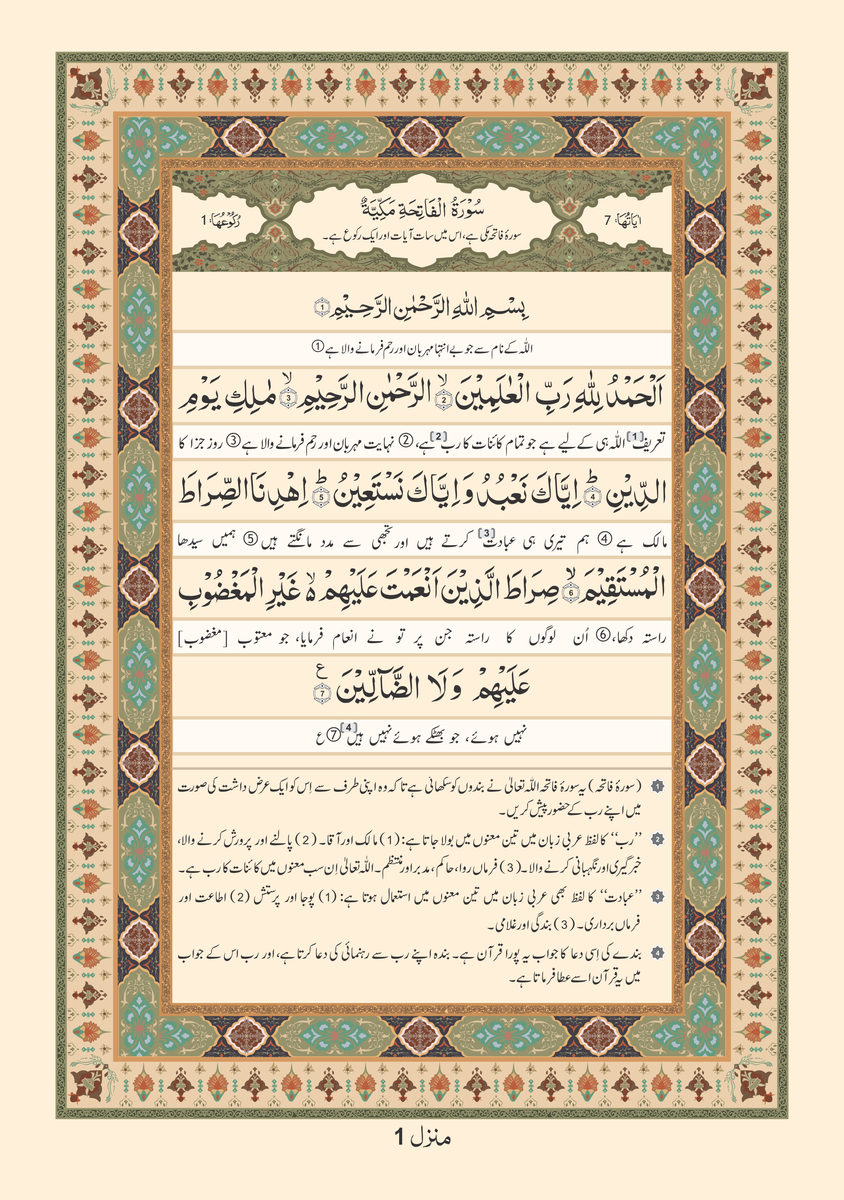 اٰیَاتُهَا: 7
سُوْرَةُ الْفَاتِحَةِ مَكِّیَّةٌ
رُكُوْعُهَا: 1
سورۂ فاتحہ مکی ہے، اس میں سات آیات اور ایک رکوع ہے۔
بِسْمِ اللّٰهِ الرَّحْمٰنِ الرَّحِیْمِ ①
اللہ کے نام سے جو بے انتہا مہربان اور رحم فرمانے والا ہے ①
اَلْحَمْدُ لِلّٰهِ رَبِّ الْعٰلَمِیْنَ ۙ② الرَّحْمٰنِ الرَّحِیْمِ ۙ③ مٰلِكِ یَوْمِ
تعریف[1] اللہ ہی کے لیے ہے جو تمام کائنات کا رب[2] ہے، ② نہایت مہربان اور رحم فرمانے والا ہے ③ روز جزا کا
الدِّیْنِ ؕ④ اِیَّاكَ نَعْبُدُ وَ اِیَّاكَ نَسْتَعِیْنُ ؕ⑤ اِهْدِنَا الصِّرَاطَ
مالک ہے ④ ہم تیری ہی عبادت[3] کرتے ہیں اور تجھی سے مدد مانگتے ہیں ⑤ ہمیں سیدھا
الْمُسْتَقِیْمَ ۙ⑥ صِرَاطَ الَّذِیْنَ اَنْعَمْتَ عَلَیْهِمْ ۙ۬ غَیْرِ الْمَغْضُوْبِ
راستہ دکھا، ⑥ اُن لوگوں کا راستہ جن پر تو نے انعام فرمایا، جو معتوب [مغضوب]
عَلَیْهِمْ وَ لَا الضَّآلِّیْنَ ⑦ ع
نہیں ہوئے، جو بھٹکے ہوئے نہیں ہیں[4] ⑦ ع
1 (سورۂ فاتحہ) یہ سورۂ فاتحہ اللہ تعالیٰ نے بندوں کو سکھائی ہے تاکہ وہ اپنی طرف سے اِس کو ایک عرض داشت کی صورت
میں اپنے رب کے حضور پیش کریں۔
2 ”رب“ کا لفظ عربی زبان میں تین معنوں میں بولا جاتا ہے: (1) مالک اور آقا۔ (2) پالنے اور پرورش کرنے والا،
خبر گیری اور نگہبانی کرنے والا۔ (3) فرماں روا، حاکم، مدبر اور منتظم۔ اللہ تعالیٰ اِن سب معنوں میں کائنات کا رب ہے۔
3 ”عبادت“ کا لفظ بھی عربی زبان میں تین معنوں میں استعمال ہوتا ہے: (1) پوجا اور پرستش (2) اطاعت اور
فرماں برداری۔ (3) بندگی اور غلامی۔
4 بندے کی اِسی دعا کا جواب یہ پورا قرآن ہے۔ بندہ اپنے رب سے رہنمائی کی دعا کرتا ہے، اور رب اس کے جواب
میں یہ قرآن اسے عطا فرماتا ہے۔
منزل 1